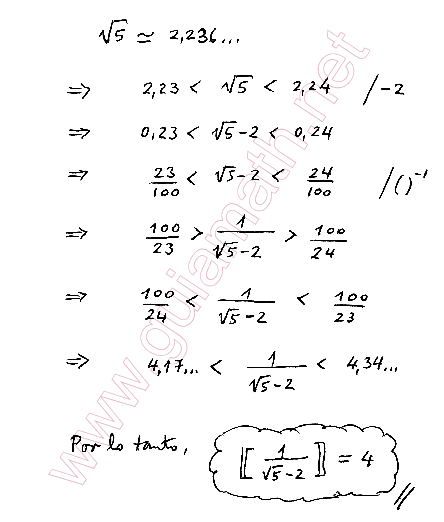 √5 ≃ 2,236...
⇒ 2,23 < √5 < 2,24 /-2
⇒ 0,23 < √5-2 < 0,24
⇒ 23/100 < √5-2 < 24/100 /()⁻¹
⇒ 100/23 > 1/(√5-2) > 100/24
⇒ 100/24 < 1/(√5-2) < 100/23
⇒ 4,17... < 1/(√5-2) < 4,34...
Por lo tanto, ⟦ 1/(√5-2) ⟧ = 4 //
www.guiamath.net